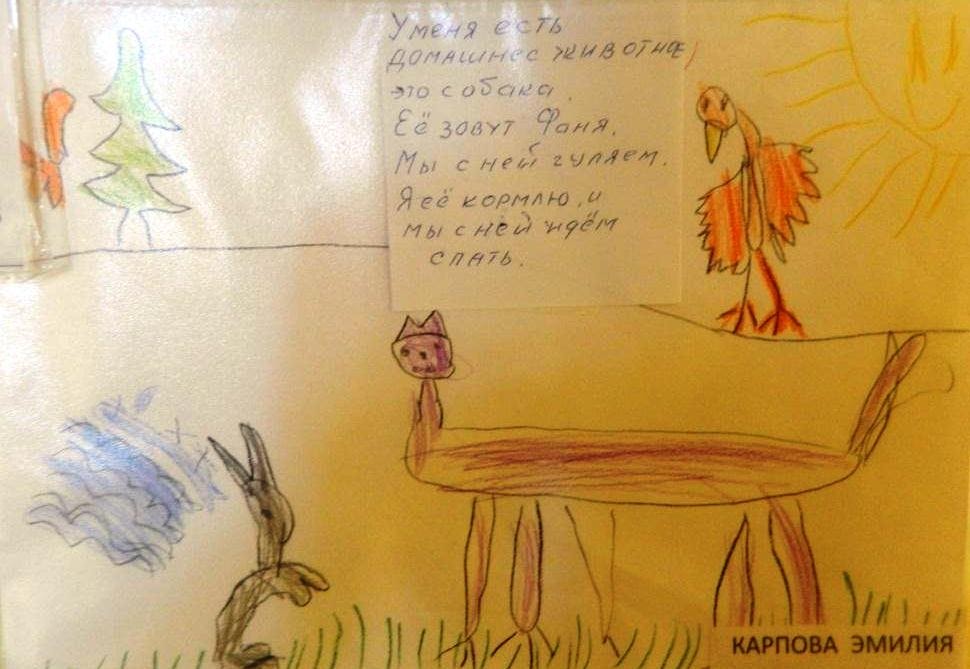 У меня есть
домашнее животное,
это собака.
Её зовут Фаня.
Мы с ней гуляем.
Я её кормлю, и
мы с ней идём
спать.
КАРПОВА ЭМИЛИЯ